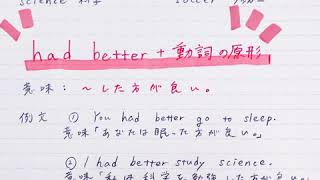 science 科学 soccer
had better + 動詞の原形
意味: ～した方が良い。
例文 ① You had better go to sleep.
意味「あなたは眠った方が良い。」
② I had better study science.
意味「私は科学を勉強した方が良い。」